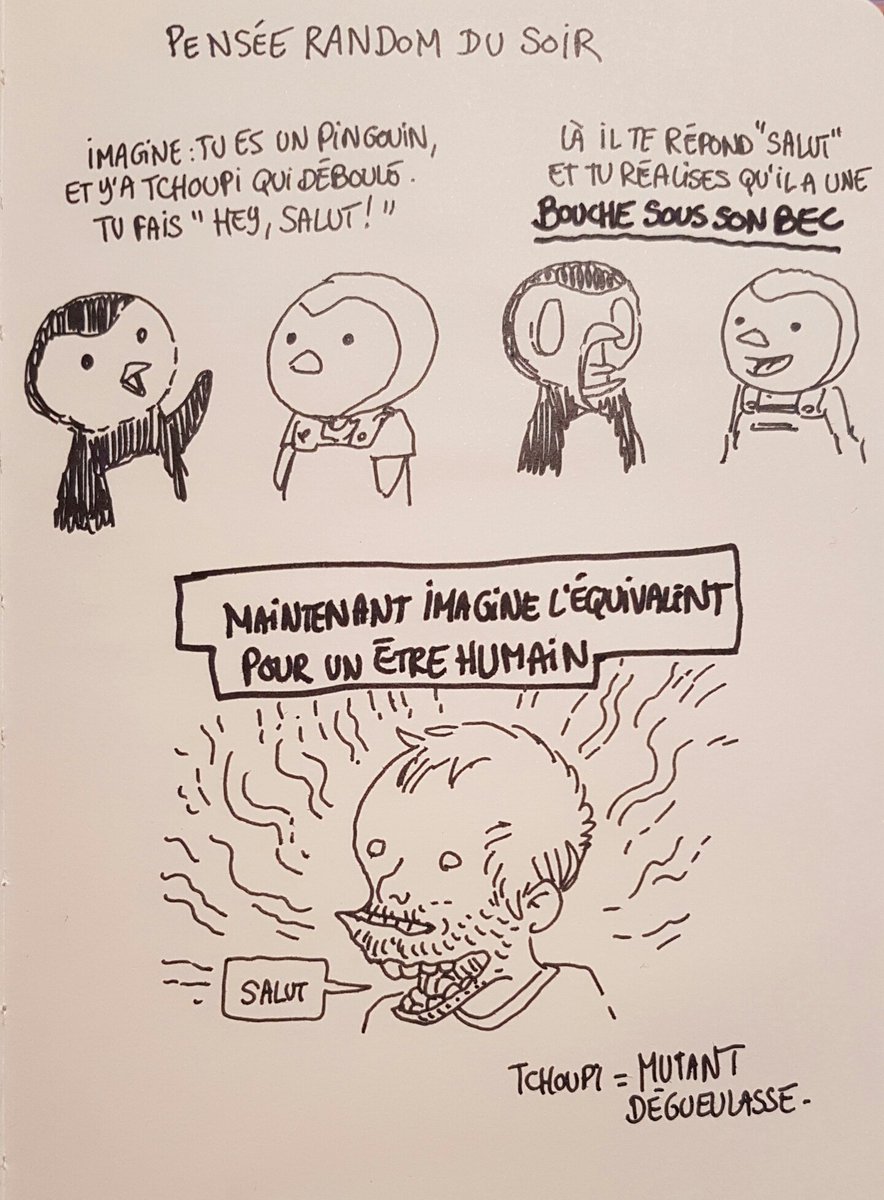 PENSÉE RANDOM DU SOIR
IMAGINE : TU ES UN PINGOUIN,
ET Y'A TCHOUPI QUI DÉBOULE.
TU FAIS "HEY, SALUT !"
LÀ IL TE RÉPOND "SALUT"
ET TU RÉALISES QU'IL A UNE
BOUCHE SOUS SON BEC
MAINTENANT IMAGINE L'ÉQUIVALENT
POUR UN ÊTRE HUMAIN
SALUT
TCHOUPI = MUTANT
DÉGUEULASSE.